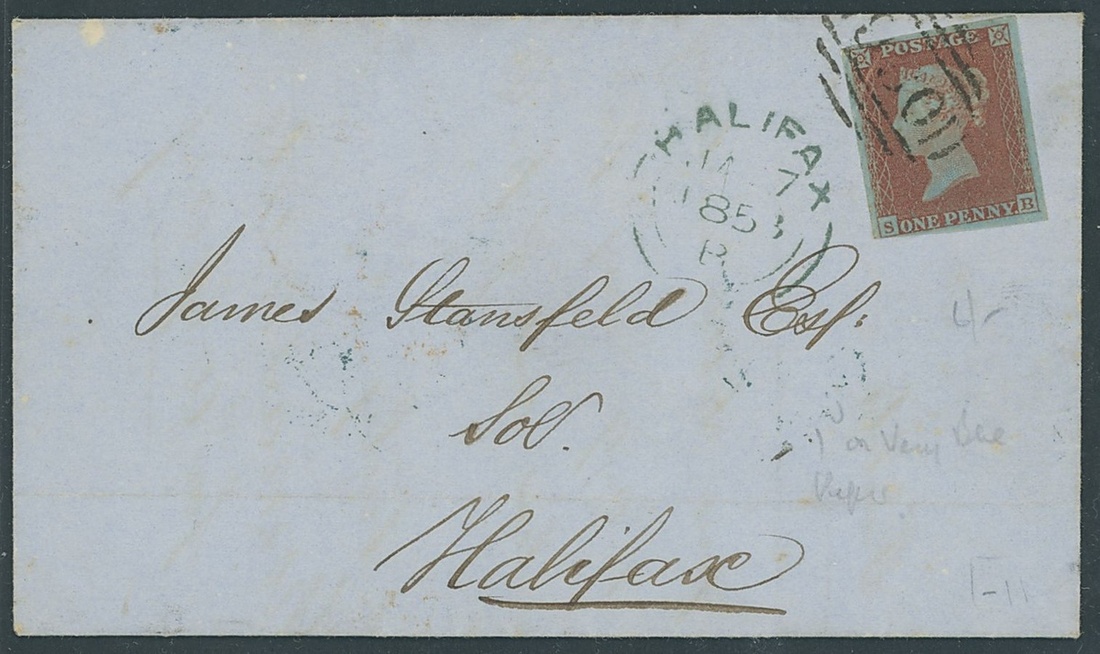 POSTAGE
S ONE PENNY. B
HALIFAX
JA 7
1853
James Stansfeld Esq:
Sol.
Halifax
4/-
1 on Very Blue
Paper